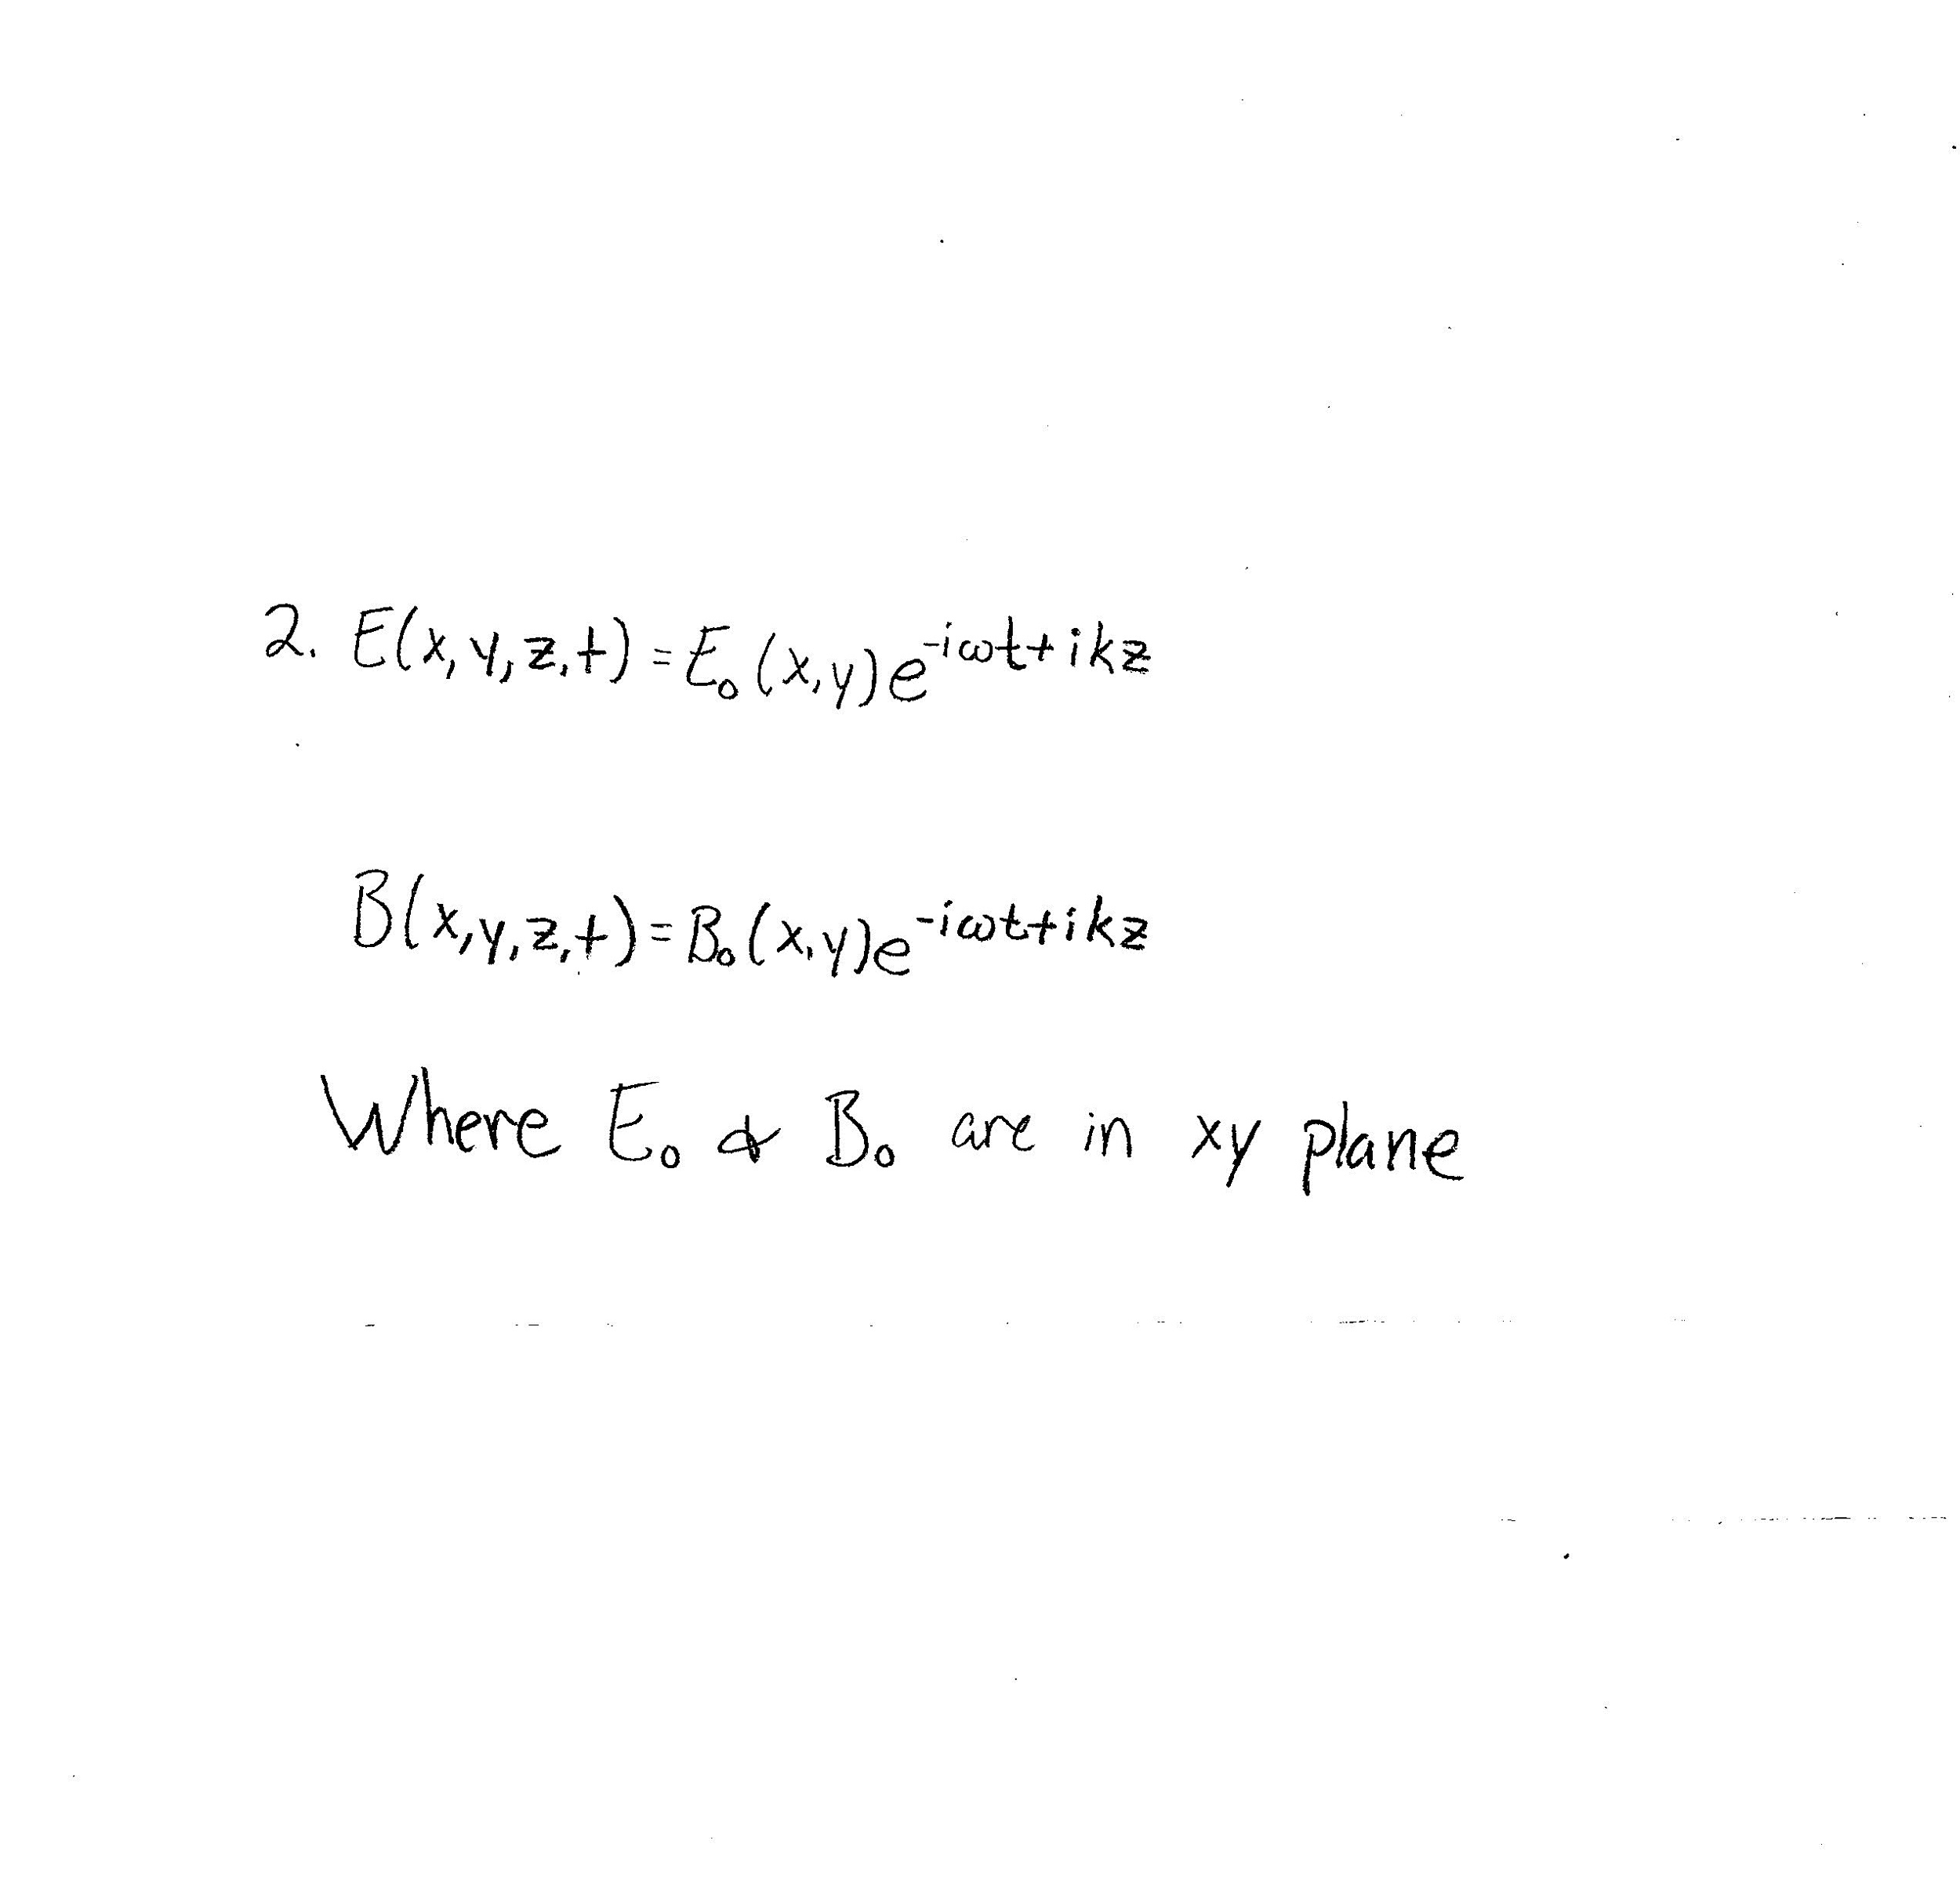 2. E(x,y,z,t)=E₀(x,y)e^{-iωt+ikz}
B(x,y,z,t)=B₀(x,y)e^{-iωt+ikz}
Where E₀ & B₀ are in xy plane